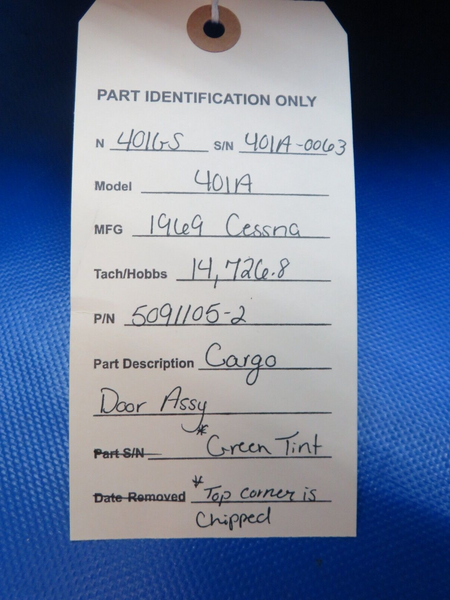 PART IDENTIFICATION ONLY
N 401GS S/N 401A-0063
Model 401A
MFG 1969 Cessna
Tach/Hobbs 14,726.8
P/N 5091105-2
Part Description Cargo
Door Assy
Part S/N * Green Tint
Date Removed * Top corner is
Chipped